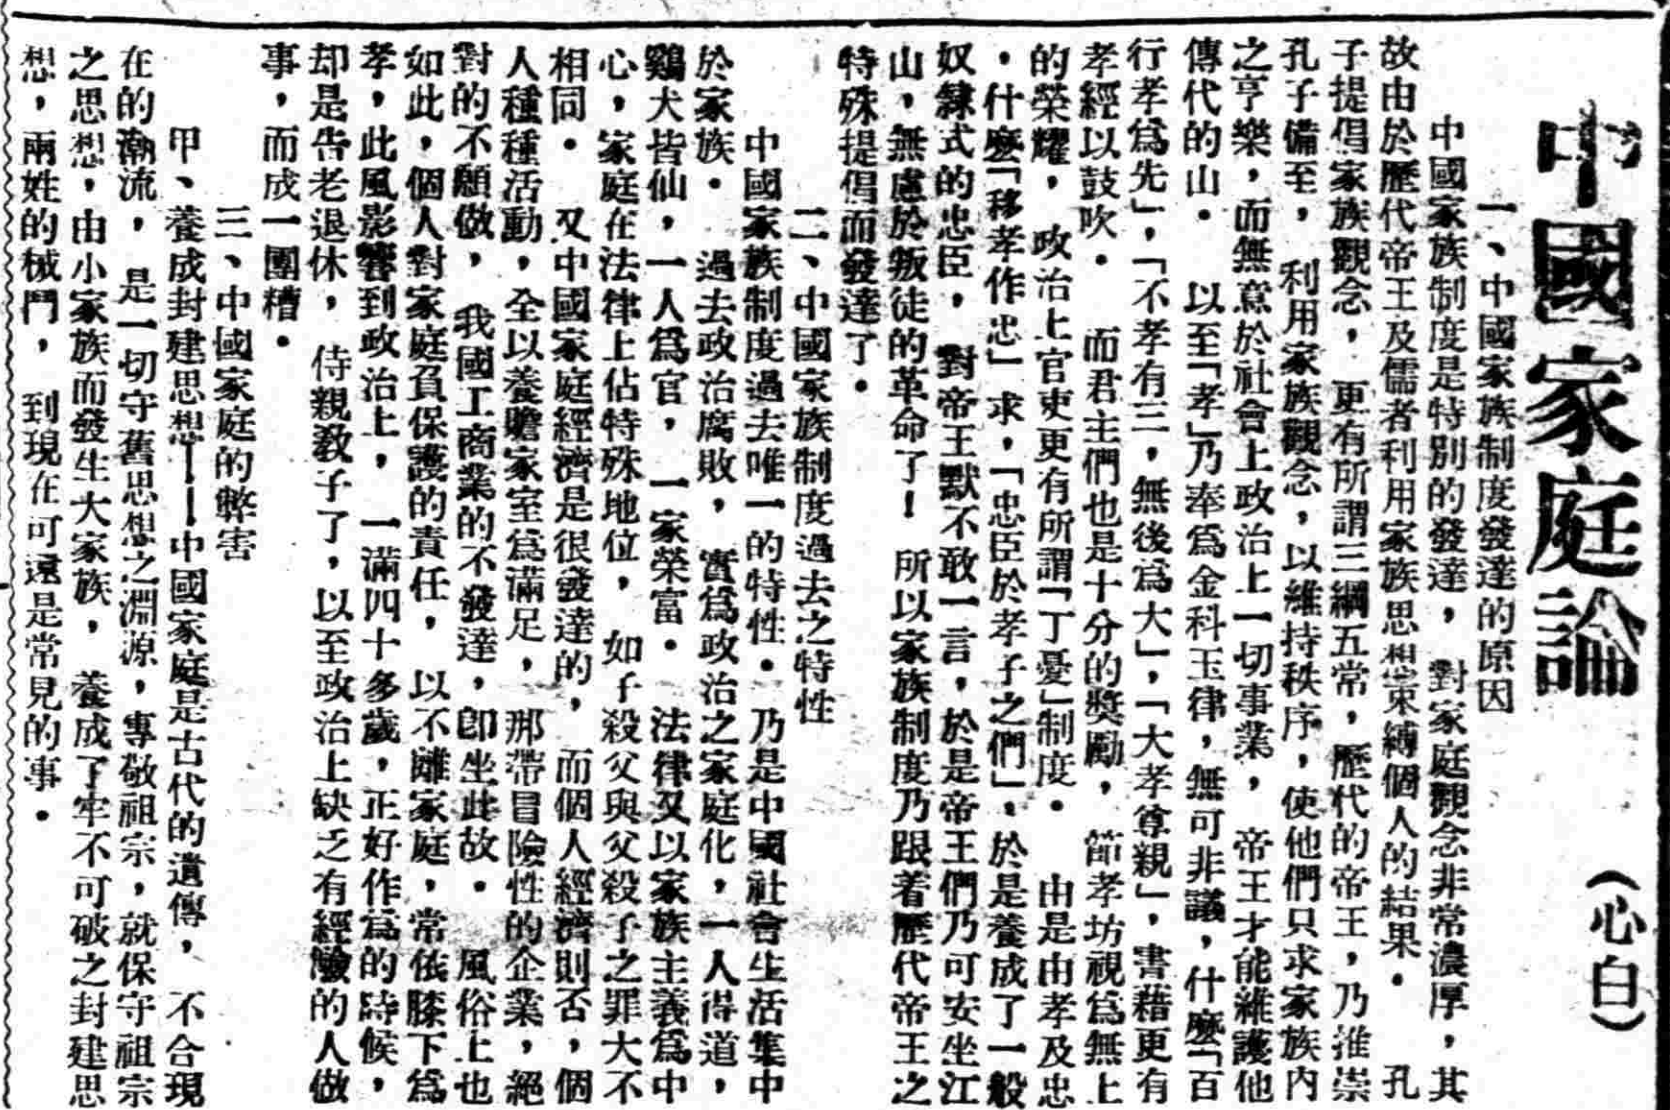 中國家庭論
(心白)
一、中國家族制度發達的原因
中國家族制度是特別的發達，對家庭觀念非常濃厚，其
故由於歷代帝王及儒者利用家族思想束縛個人的結果．孔
子提倡家族觀念，更有所謂三綱五常，歷代的帝王，乃推崇
孔子備至，利用家族觀念，以維持秩序，使他們只求家族內
之亨樂，而無意於社會上政治上一切事業，帝王才能維護他
傳代的山．以至「孝」乃奉爲金科玉律，無可非議，什麽「百
行孝爲先」，「不孝有三，無後爲大」，「大孝尊親」，書藉更有
孝經以鼓吹．而君主們也是十分的獎勵，節孝坊視爲無上
的榮耀，政治上官吏更有所謂「丁憂」制度．由是由孝及忠
．什麽「移孝作忠」求，「忠臣於孝子之們」．於是養成了一般
奴隸式的忠臣，對帝王默不敢一言，於是帝王們乃可安坐江
山，無慮於叛徒的革命了！所以家族制度乃跟着歷代帝王之
特殊提倡而發達了．
二、中國家族制度過去之特性
中國家族制度過去唯一的特性．乃是中國社會生活集中
於家族．過去政治腐敗，實爲政治之家庭化，一人得道，
鷄犬皆仙，一人爲官，一家榮富．法律又以家族主義爲中
心，家庭在法律上佔特殊地位，如子殺父與父殺子之罪大不
相同．又中國家庭經濟是很發達的，而個人經濟則否，個
人種種活動，全以養贍家室爲滿足，那帶冒險性的企業，絕
對的不願做，我國工商業的不發達，卽坐此故．風俗上也
如此，個人對家庭負保護的責任，以不離家庭，常依膝下爲
孝，此風影響到政治上，一滿四十多歲，正好作爲的時候，
却是告老退休，侍親敎子了，以至政治上缺乏有經驗的人做
事，而成一團糟．
三、中國家庭的弊害
甲、養成封建思想——中國家庭是古代的遺傳，不合現
在的潮流，是一切守舊思想之淵源，專敬祖宗，就保守祖宗
之思想，由小家族而發生大家族，養成了牢不可破之封建思
想，兩姓的械鬥，到現在可遠是常見的事．